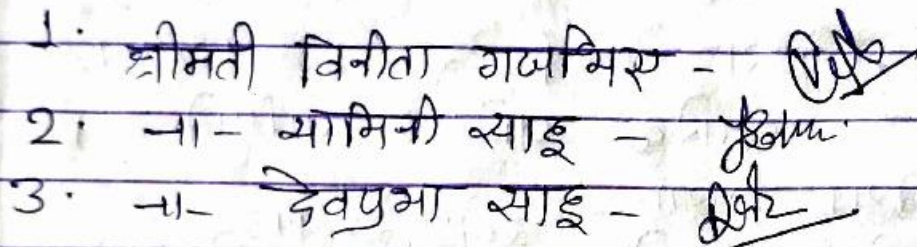 1. श्रीमती विनीता गजभिए -
2. -ा- यामिनी साहू -
3. -ा- देवप्रभा साहू -